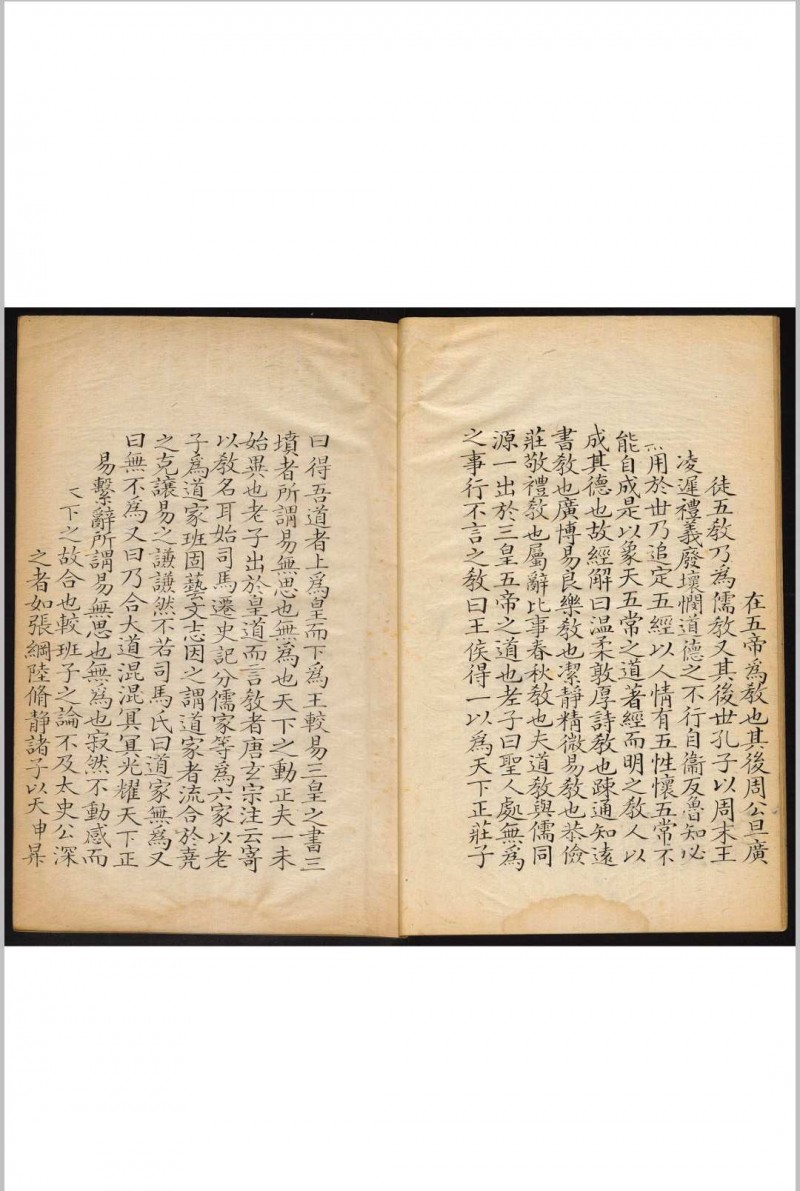 在五帝為教也其後周公旦廣
徒五教乃為儒教又其後世孔子以周末王
凌遲禮義廢壞憫道德之不行自衞反魯知必
用於世乃追定五經以人情有五性懷五常不
能自成是以象天五常之道著經而明之教人以
成其德也故經解曰温柔敦厚詩教也踈通知遠
書教也廣博易良樂教也潔靜精微易教也恭儉
莊敬禮教也屬辭比事春秋教也夫道教與儒同
源一出於三皇五帝之道也老子曰聖人處無為
之事行不言之教曰王侯得一以為天下正莊子
曰得吾道者上為皇而下為王較易三皇之書三
墳者所謂易無思也無為也天下之動正夫一未
始異也老子出於皇道而言教者唐玄宗注云寄
以教名耳始司馬遷史記分儒家等為六家以老
子為道家班固藝文志因之謂道家者流合於堯
之克讓易之謙謙然不若司馬氏曰道家無為又
曰無不為又曰乃合大道混混冥冥光耀天下正
易繫辭所謂易無思也無為也寂然不動感而
下之故合也較班子之論不及太史公深
之者如張綱陸脩靜諸子以天申昇